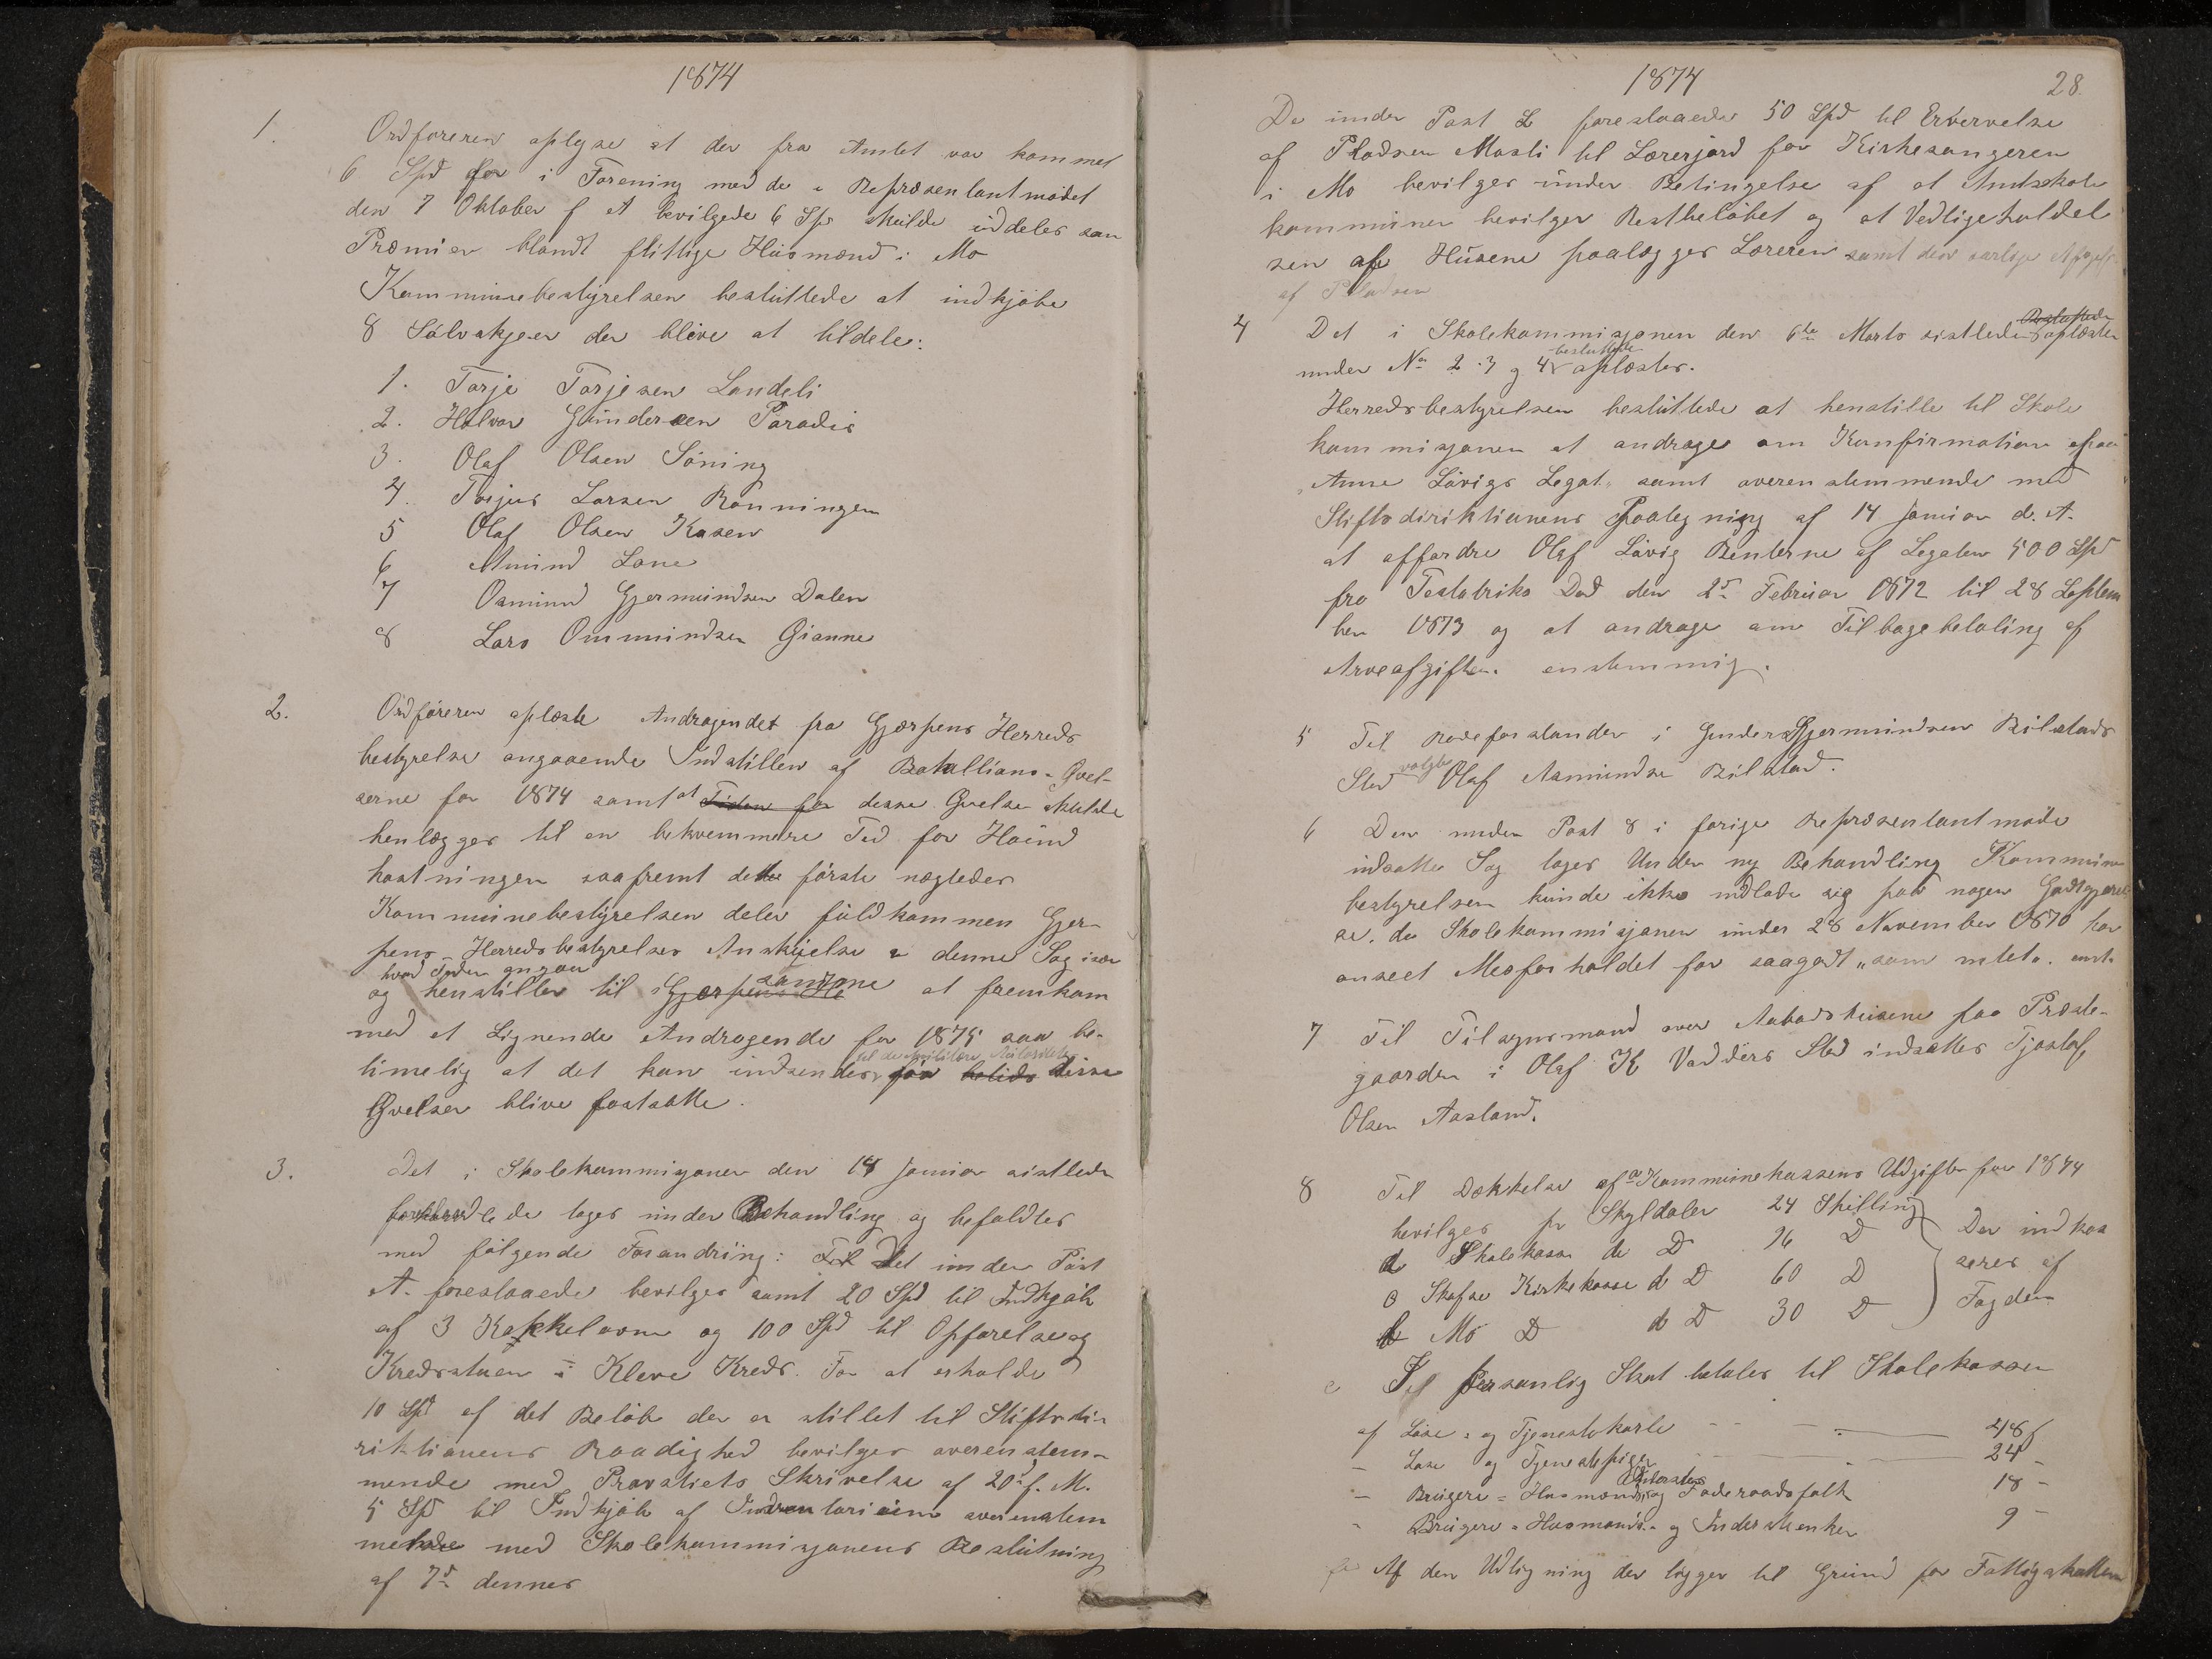 1874
1. Ordføreren oplyse at der fra Amtet var kommet
6 Spd der i Forening med de i Repræsentantmødet
den 7 Oktober f A bevilgede 6 Spd skulde uddeles som
Præmier blandt flittige Husmænd i Mo
Kommunebestyrelsen besluttede at indkjøbe
8 Sølvskjeer der blive at tildele:
1. Torje Torjesen Landeli
2. Halvor Gundersen Paradis
3. Olaf Olsen Søning
4. Torjus Larsen Rønningen
5 Olaf Olsen Kasen
6 Amund Lone
7 Osmund Gjermundsen Dalen
8 Lars Ommundsen Gianne
2. Ordføreren oplæste Andragendet fra Gjerpens Herreds
bestyrelse angaaende Indstillen af Batallions-Øvel-
serne for 1874 samt at Tiden for disse Øvelser skulde
henlægges til en bekvemmere Tid for Haand
høstningen saafremt dette første nægtedes
Kommunebestyrelsen deler fuldkommen Gjer-
pens Herredsbestyrelses Anskuelse i denne Sag især
hvad Tiden angaar
og henstiller til Gjerpens He samme at fremkom
med et Lignende Andragende for 1875 saa be-
timelig at det kan indsendes til de militære Autoriteter før disse
Øvelser blive fastsatte.
3. Det i Skolekommisjonen den 14 Januar sistleden
forhandlede tages under Behandling og befaldtes
med følgende Forandring: Det under Post
A. foreslaaede bevilges samt 20 Spd til Indkjøb
af 3 Kakkelovne og 100 Spd til Opførelse af
Kredsstuen i Kleve Kreds. For at erholde
10 Spd af det Beløb der er stillet til Stiftsdi-
riktionens Raadighed bevilges overenstem-
mende med Provstiets Skrivelse af 20de f. M.
5 Spd til Indkjøb af Inventarium overenstem
mende med Skolekommisjonens Beslutning
af 7de dennes
1874
28.
De under Post L foreslaaede 50 Spd til Erhvervelse
af Pladsen Mosli til Lærerjord for Kirkesangeren
i Mo bevilges under Betingelse af at Amtsskole
kommunen bevilger Restbeløbet og at Vedligeholdel
sen af Husene paalægges Læreren samt den aarlige Afgift
af Pladsen
4 Det i Skolekommisjonen den 6te Marts sistleden Besluttede oplæstes
under No 2.3 og 4 besluttede oplæstes.
Herredsbestyrelsen besluttede at henstille til Skole
kommisjonen at andrage om Konfirmation paa
Anne Løvigs Legat, samt overenstemmende med
Stiftsdiriktionens Paalegning af 14 Januar d. A.
at affordre Olaf Løvig Renterne af Legaten 500 Spd
fra Testatriks Død den 2den Februar 1872 til 28 Septem
ber 1873 og at andrage om Tilbagebetaling af
Arveafgiften. enstemmig.
5 Til Rodeforstander i Gunder Gjermundsen Bilstads
Sted valgte Olaf Aamundsen Bilstad.
6 Den under Post 8 i forige Repræsentantmøde
udsatte Sag toges Under ny Behandling Kommune
bestyrelsen kunde ikke indlade sig paa nogen Godtgjørel
se. da Skolekommisjonen under 28 November 1870 har
anseet Mesforholdet for saagodt „som intet". enst.
7 Til Tilsynsmand over Aabodshusene paa Præste-
gaarden i Olaf K Vadders Sted indsattes Tjostolf
Olsen Aasland.
8 Til Dækkelse af a Kommunekassens Udgifter for 1874
bevilges pr Skyldaler 24 Skilling
d Skolekassen do D 96 D
c Skafse Kirkekasse do D 60 D
b Mo D do D 30 D
Der indkas
seres af
Fogden
e Til personlig Skat betales til Skolekassen
af Løse- og Tjenestekarle 48 ſ
- Løse og Tjenestepiger 24 -
- Brugere - Husmænd, Inderster og Føderaadsfolk 18 -
- Brugere- Husmands- og Inderstenker 9 -
f Af den Udligning der ligger til Grund for Fattigskatten